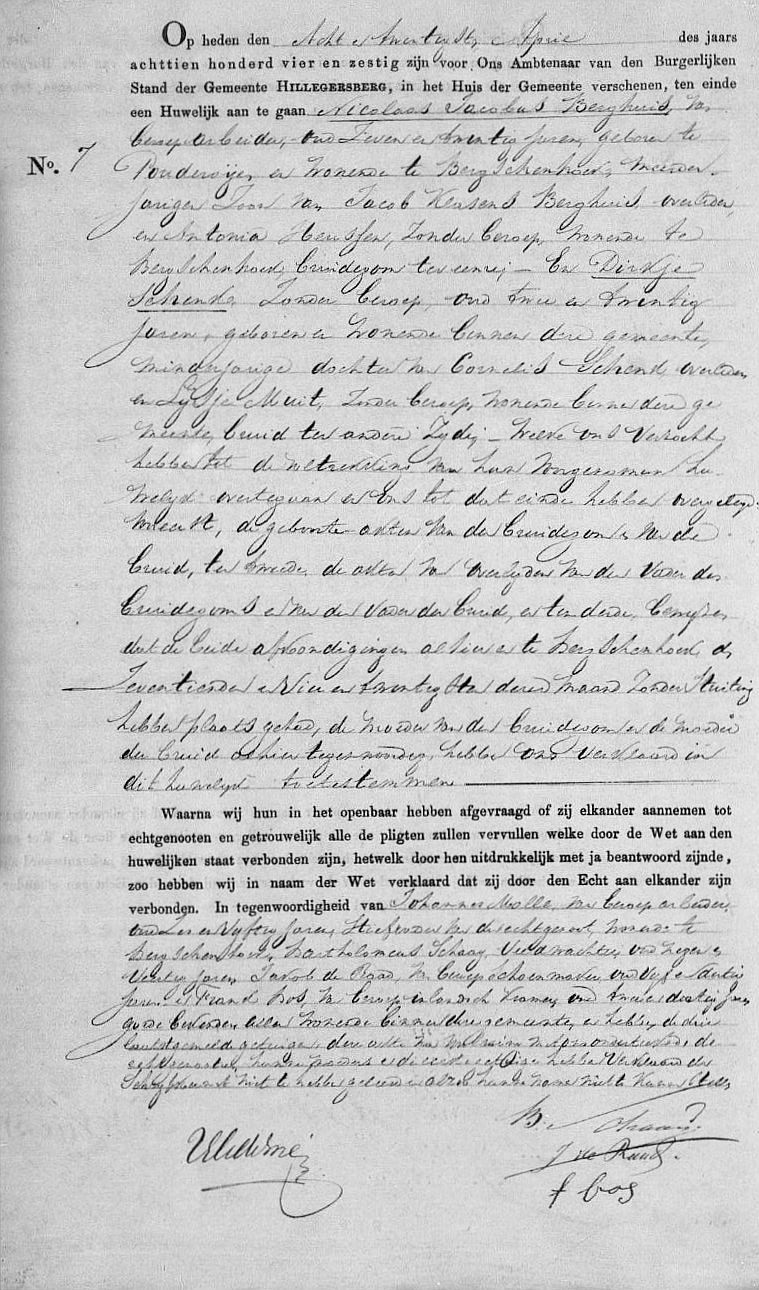 Op heden den Acht en twintigste April des jaars
achttien honderd vier en zestig zijn voor Ons Ambtenaar van den Burgerlijken
Stand der Gemeente HILLEGERSBERG, in het Huis der Gemeente verschenen, ten einde
een Huwelijk aan te gaan Nicolaas Jacobus Berghuis, van
beroep arbeider, oud Zeven en twintig jaren, geboren te
No. 7
en wonende te Bergschenhoek, meerder-
jarige Zoon van Jacob Berghuis, overleden
en Antonia Heussen, Zonder beroep, wonende te
Bergschenhoek, bruidegom ter eene; – En Dirkje
Schenk, Zonder beroep, oud twee en twintig
jaren, geboren en wonende binnen deze gemeente,
minderjarige dochter van Cornelis Schenk, overleden
en Muit, Zonder beroep, wonende binnen deze ge
meente, bruid ter andere Zyde; – Welke ons verzocht
hebben tot de voltrekking van hun voorgenomen hu-
welyk overtegaan en ons tot dat einde hebben overgelegd
vooreerst, de geboorte-akten van den bruidegom en van de
bruid, ten tweede, de akten van overlyden van den Vader des
bruidegoms en van den Vader der bruid, en ten derde, bewyzen
dat de beide afkondigingen alhier en te Bergschenhoek, de
Zeventienden en Vier en twintigsten dezer maand Zonder Stuiting
hebben plaats gehad, de moeder van den bruidegom en de moeder
der bruid alhier tegenwoordig, hebben ons verklaard in
dit huwelyk toetestemmen
Waarna wij hun in het openbaar hebben afgevraagd of zij elkander aannemen tot
echtgenooten en getrouwelijk alle de pligten zullen vervullen welke door de Wet aan den
huwelijken staat verbonden zijn, hetwelk door hen uitdrukkelijk met ja beantwoord zijnde,
zoo hebben wij in naam der Wet verklaard dat zij door den Echt aan elkander zijn
verbonden. In tegenwoordigheid van Johannes Molle, van beroep arbeider,
oud Zes en Vyftig jaren, Stiefvader van de echtgenoot, wonende te
Bergschenhoek, Bartholomeus Schaay, Veldwachter, oud Negen en
Veertig jaren, Jacob de Raad, van beroep Schoenmaker, oud Vyf en dertig
jaren en Frans Bos, van beroep Kramer, oud twee en dertig jaren
goede bekenden, allen wonende binnen deze gemeente, en hebben de drie
laatstgemelde getuigen deze akte na voorlezing met ons onderteekend, de
echtgenooten, hunne moeders en de eerste getuige hebben verklaard de
Schryfkunst niet te hebben geleerd en alzoo hunne namen niet te kunnen Stellen
B. Schaay
J de Raad.
f bos